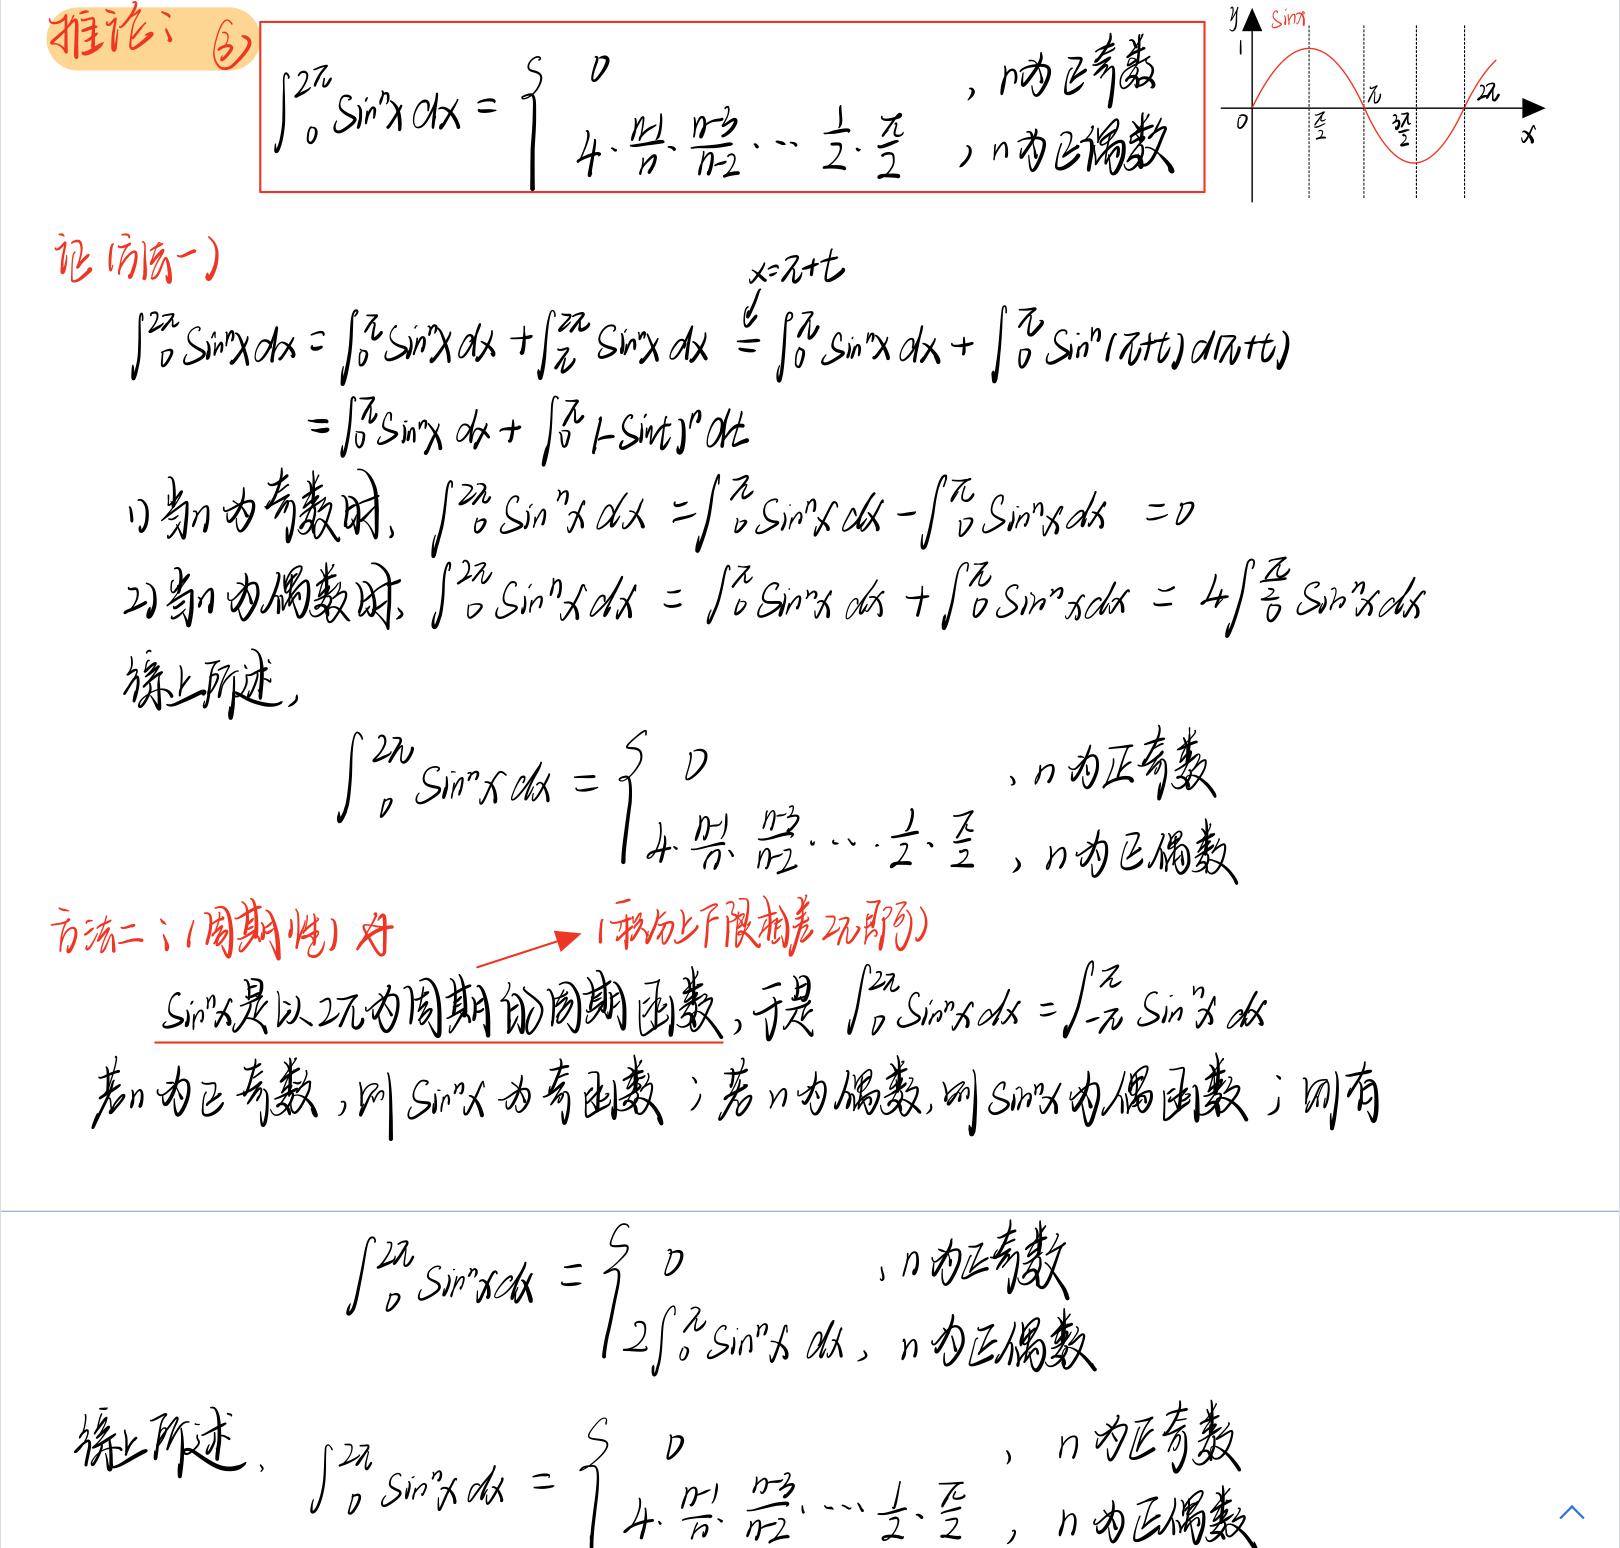 推论: ③
∫₀^{2π} sinⁿx dx = { 0 , n为正奇数
4·(n-1)/n·(n-3)/(n-2)·…·1/2·π/2 , n为正偶数
y sinx
1
0 π/2 π 3π/2 2π x
证(方法一)
x=π+t
∫₀^{2π} sinⁿx dx = ∫₀^π sinⁿx dx + ∫_π^{2π} sinⁿx dx = ∫₀^π sinⁿx dx + ∫₀^π sinⁿ(π+t) d(π+t)
= ∫₀^π sinⁿx dx + ∫₀^π (-sint)ⁿ dt
1) 当n为奇数时, ∫₀^{2π} sinⁿx dx = ∫₀^π sinⁿx dx - ∫₀^π sinⁿx dx = 0
2) 当n为偶数时, ∫₀^{2π} sinⁿx dx = ∫₀^π sinⁿx dx + ∫₀^π sinⁿx dx = 4∫₀^{π/2} sinⁿx dx
综上所述,
∫₀^{2π} sinⁿx dx = { 0 , n为正奇数
4·(n-1)/n·(n-3)/(n-2)·…·1/2·π/2 , n为正偶数
方法二:(周期性)
(积分上下限相差2π即可)
sinⁿx是以2π为周期的周期函数, 于是 ∫₀^{2π} sinⁿx dx = ∫_{-π}^π sinⁿx dx
若n为正奇数, 则sinⁿx为奇函数; 若n为偶数, 则sinⁿx为偶函数; 则有
∫₀^{2π} sinⁿx dx = { 0 , n为正奇数
2∫₀^π sinⁿx dx, n为正偶数
综上所述, ∫₀^{2π} sinⁿx dx = { 0 , n为正奇数
4·(n-1)/n·(n-3)/(n-2)·…·1/2·π/2 , n为正偶数